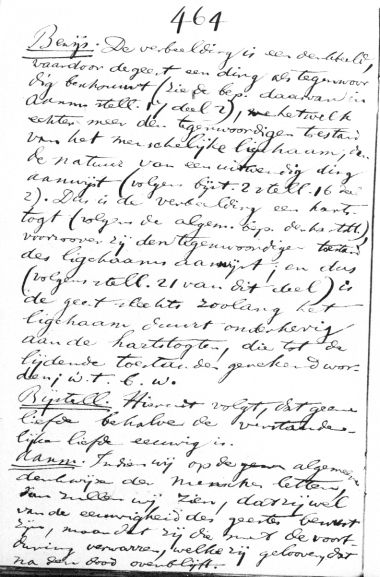 464
Bewijs: De verbeelding is een denkbeeld,
waardoor de geest een ding als tegenwoor
dig beschouwt (zie de bep. daarvan in
Aanm. stell. 17 deel 2), hetwelk
echter meer den tegenwoordigen toestand
van het menschelijke ligchaam, dan
de natuur van een uitwendig ding
aanwijst (volgens bijst. 2 stell. 16 deel
2). Dus is de verbeelding een harts-
togt (volgens de algem. bep. der hartst.),
voorzoover zij den tegenwoordigen toestand
des ligchaams aanwijst; en dus
(volgens stell. 21 van dit deel) is
de geest slechts zoolang het
ligchaam duurt onderhevig
aan de hartstogten, die tot de
lijdende toestanden gerekend wor-
den; w. t. b. w.
Bijstell: Hieruit volgt, dat geene
liefde behalve de verstande-
lijke liefde eeuwig is.
Aanm: Indien wij op de algemeene
denkwijze der menschen letten,
dan zullen wij zien, dat zij wel
van de eeuwigheid des geestes bewust
zijn, maar dat zij die met de voort-
during verwarren, welke zij gelooven, dat
na den dood overblijft.